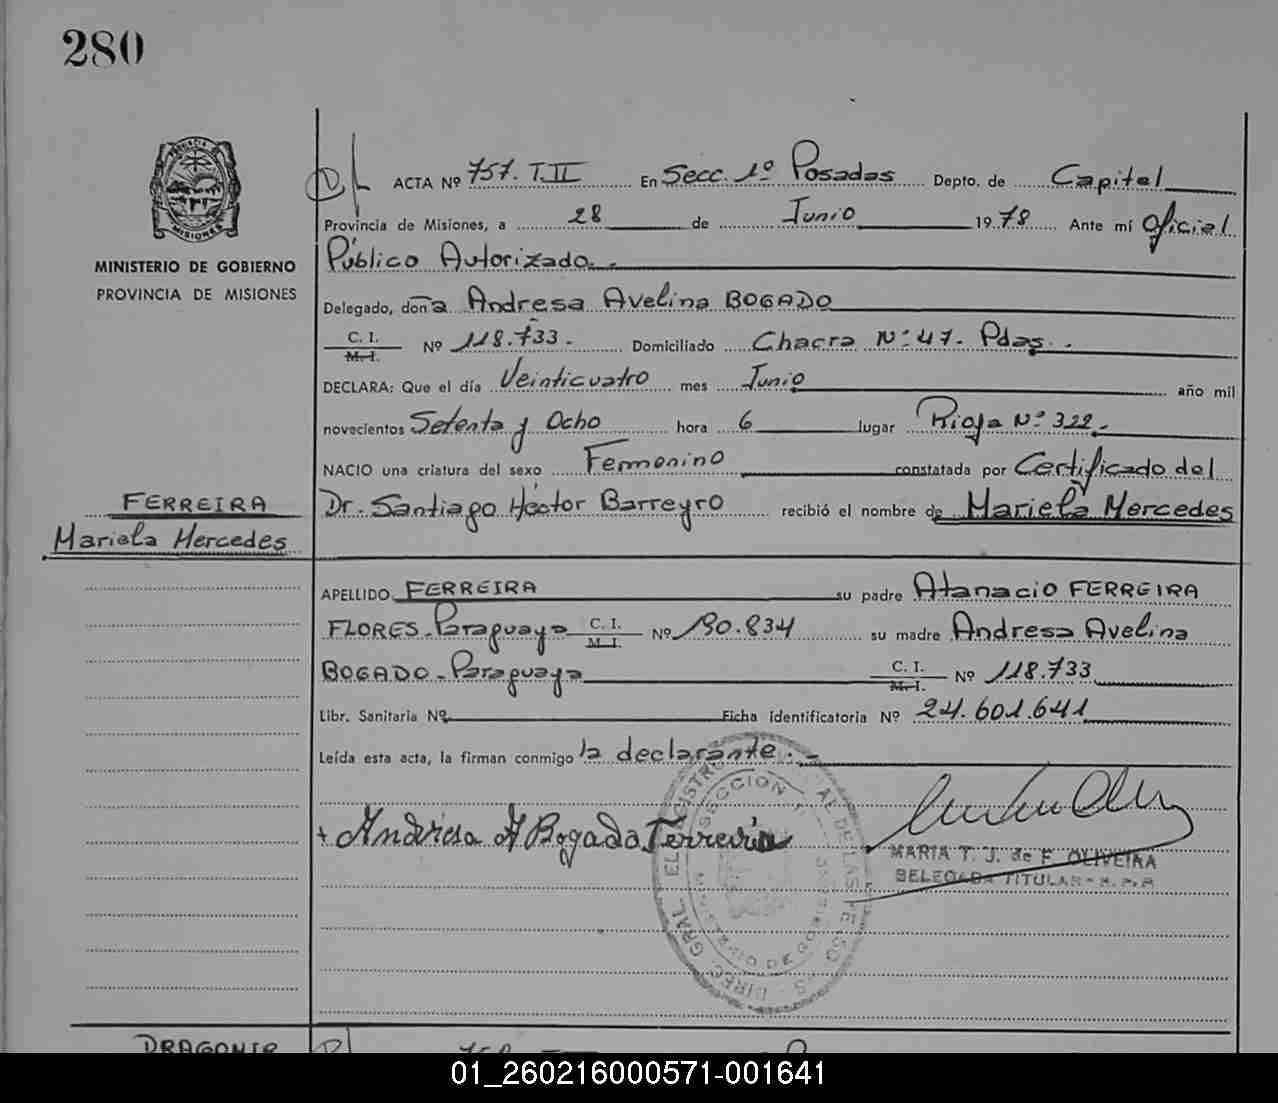 280
ACTA Nº 757. T. II En Secc. 1º Posadas Depto. de Capital
Provincia de Misiones, a 28 de Junio 1978 Ante mí Oficial
Público Autorizado.-
MINISTERIO DE GOBIERNO
PROVINCIA DE MISIONES
Delegado, doña Andresa Avelina BOGADO
C. I.
M. I. Nº 118.733.- Domiciliado Chacra Nº 47. Pdas.-
DECLARA: Que el día Veinticuatro mes Junio año mil
novecientos Setenta y Ocho hora 6 lugar Rioja Nº 322.-
NACIO una criatura del sexo Femenino constatada por Certificado del
Dr. Santiago Héctor Barreyro recibió el nombre de Mariela Mercedes
FERREIRA
Mariela Mercedes
APELLIDO FERREIRA su padre Atanacio FERREIRA
FLORES-Paraguaya C. I.
M. I. Nº 190.834 su madre Andresa Avelina
BOGADO-Paraguaya C. I.
M. I. Nº 118.733
Libr. Sanitaria Nº Ficha Identificatoria Nº 24.601.641
Leída esta acta, la firman conmigo la declarante.-
+ Andresa A Bogado Ferreira
MARIA T. J. de F. OLIVEIRA
DELEGADA TITULAR - R. P. P.
SECCION 1
DIRECC. GRAL. DEL REGISTRO
DE LAS PERSONAS
DRAGONIR
01_260216000571-001641